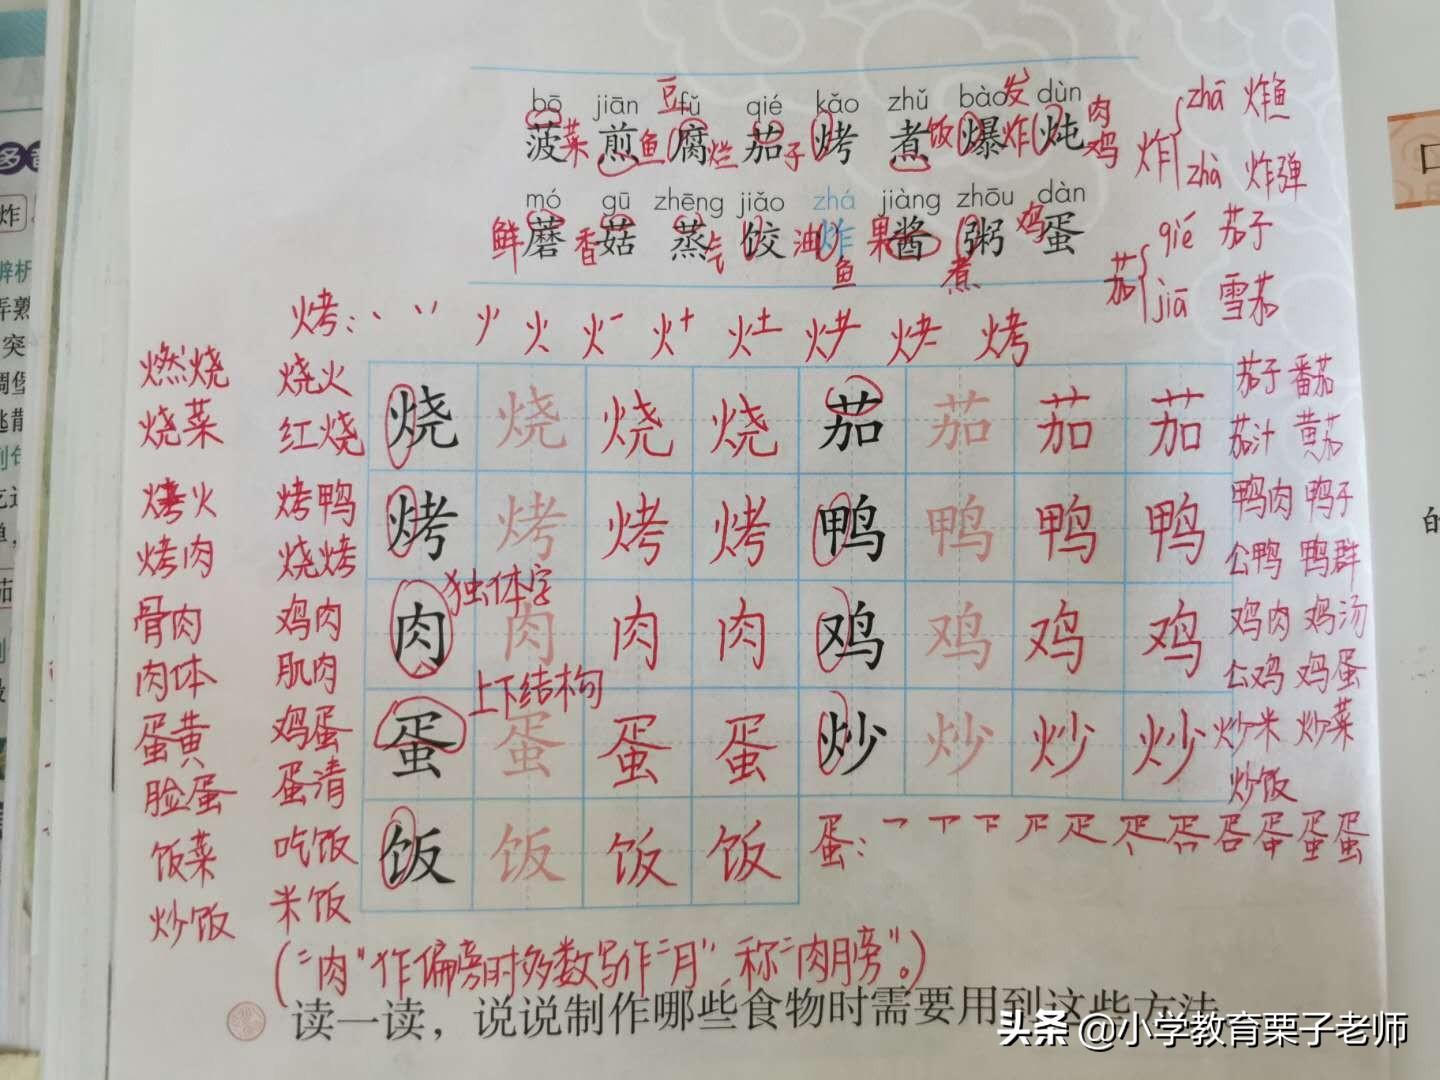 bō jiān fǔ qié kǎo zhǔ bào dùn
菠菜 煎鱼 豆腐烂 茄子 烤 煮饭 爆炸 炖肉 发 鸡
炸 zhā 炸鱼
zhà 炸弹
mó gū zhēng jiǎo zhá jiàng zhōu dàn
鲜蘑 香菇 蒸气 饺 油炸鱼 果酱 煮粥 鸡蛋
茄 qié 茄子
jiā 雪茄
烤：丶 丷 火 火 火一 火十 火土 烤 烤 烤
燃烧 烧火 烧 烧 烧 烧 茄 茄 茄 茄 茄子 番茄
烧菜 红烧 茄汁 黄茄
烤火 烤鸭 烤 烤 烤 烤 鸭 鸭 鸭 鸭 鸭肉 鸭子
烤肉 烧烤 公鸭 鸭群
独体字
骨肉 鸡肉 肉 肉 肉 肉 鸡 鸡 鸡 鸡 鸡肉 鸡汤
肉体 肌肉 公鸡 鸡蛋
上下结构
蛋黄 鸡蛋 蛋 蛋 蛋 蛋 炒 炒 炒 炒 炒米 炒菜
脸蛋 蛋清 炒饭
饭菜 吃饭 饭 饭 饭 饭 蛋：
炒饭 米饭
（“肉”作偏旁时多数写作“月”，称“肉月旁”。）
读一读，说说制作哪些食物时需要用到这些方法
头条 @小学教育栗子老师
炸
辨析
弄熟
突